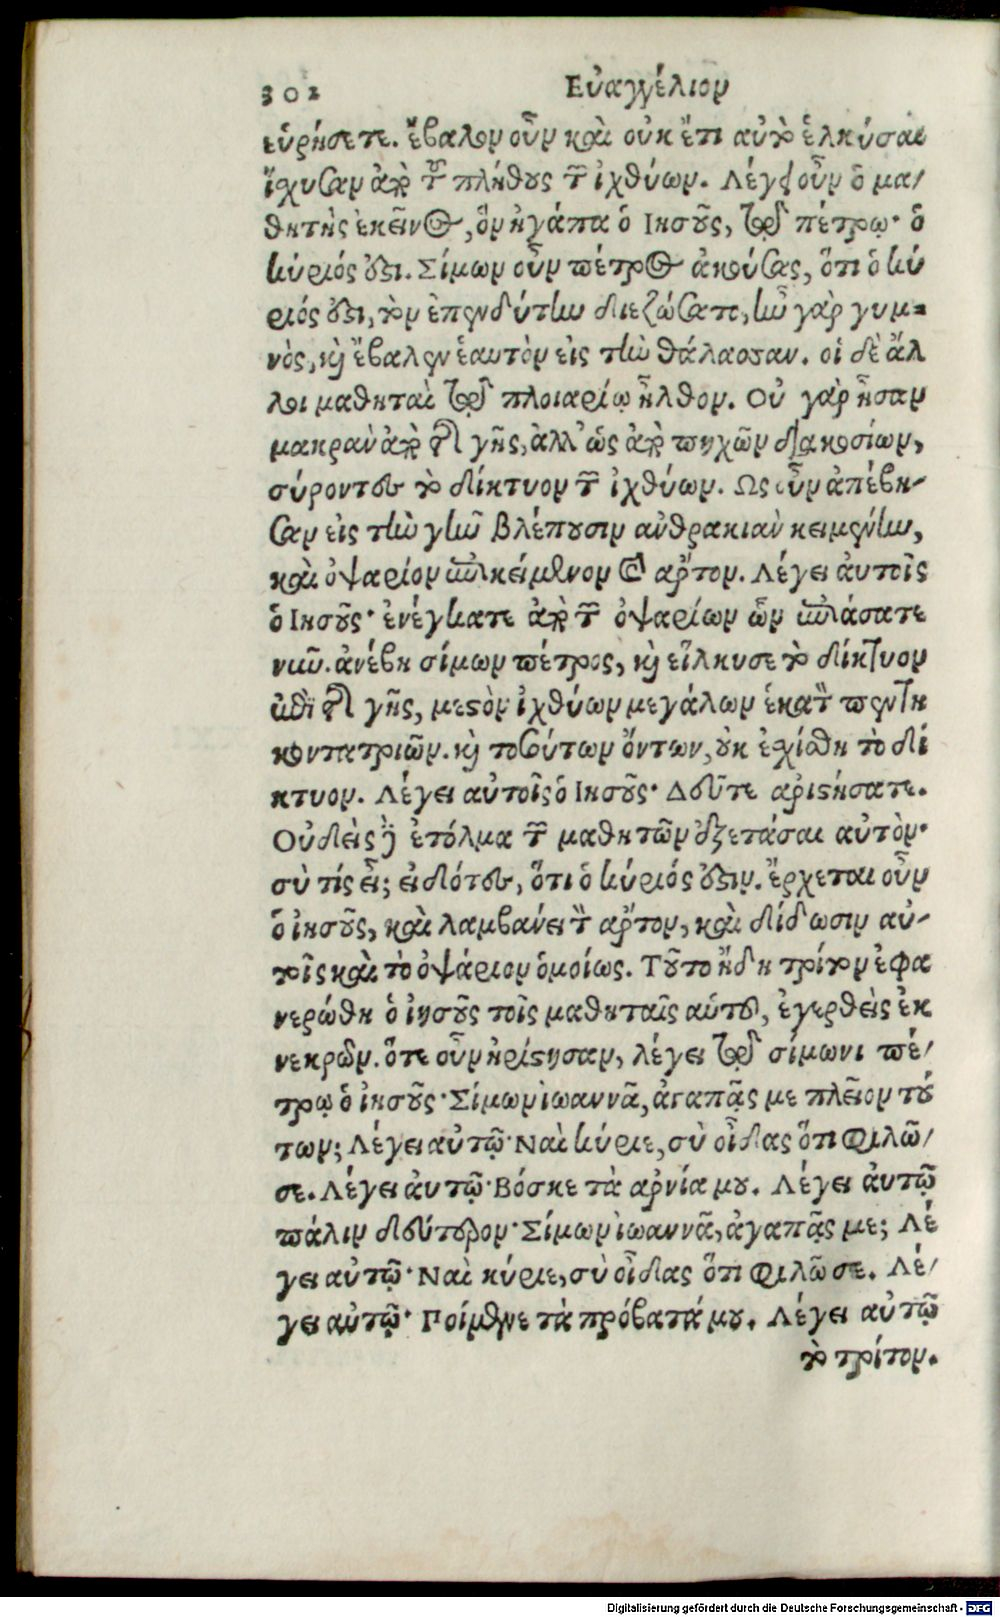 302 Εὐαγγέλιον
εὑρήσετε. ἔβαλον οὖν καὶ οὐκ ἔτι αὐτὸ ἑλκύσαι
ἴχυσαν ἀπὸ τοῦ πλήθους τῶν ἰχθύων. Λέγει οὖν ὁ μα/
θητὴς ἐκεῖνος, ὃν ἠγάπα ὁ Ιησοῦς, τῷ πέτρῳ· ὁ
κύριός ἐστι. Σίμων οὖν πέτρος ἀκούσας, ὅτι ὁ κύ
ριός ἐστι, τὸν ἐπενδύτην διεζώσατο, ἦν γὰρ γυμ=
νὸς, καὶ ἔβαλεν ἑαυτὸν εἰς τὴν θάλασσαν. οἱ δὲ ἄλ
λοι μαθηταὶ τῷ πλοιαρίῳ ἦλθον. Οὐ γὰρ ἦσαν
μακρὰν ἀπὸ τῆς γῆς, ἀλλ’ ὡς ἀπὸ πηχῶν διακοσίων,
σύροντες τὸ δίκτυον τῶν ἰχθύων. Ως οὖν ἀπέβη-
σαν εἰς τὴν γῆν βλέπουσιν ἀνθρακιὰν κειμένην,
καὶ ὀψαρίον ἐπικείμενον καὶ ἄρτον. Λέγει ἀυτοῖς
ὁ Ιησοῦς· ἐνέγκατε ἀπὸ τῶν ὀψαρίων ὧν ἐπιάσατε
νῦν. ἀνέβη σίμων πέτρος, καὶ εἵλκυσε τὸ δίκτυον
ἐπὶ τῆς γῆς, μεστὸν ἰχθύων μεγάλων ἑκατὸν πεντη
κοντατριῶν. καὶ τοσούτων ὄντων, οὐκ ἐχίσθη τὸ δί
κτυον. Λέγει αὐτοῖς ὁ Ιησοῦς· Δεῦτε αριστήσατε.
Οὐδεὶς δὲ ἐτόλμα τῶν μαθητῶν ἐξετάσαι αὐτὸν·
σὺ τίς εἶ; εἰδότες, ὅτι ὁ κύριός ἐστιν. ἔρχεται οὖν
ὁ ἰησοῦς, καὶ λαμβανέι τὸν ἄρτον, καὶ δίδωσιν αὐ-
τοῖς καὶ τὸ ὀψάριον ὁμοίως. Τοῦτο ἤδη τρίτον ἐφα
νερώθη ὁ ἰησοῦς τοῖς μαθηταῖς αὑτοῦ, ἐγερθεὶς ἐκ
νεκρῶν. ὅτε οὖν ἠρίστησαν, λέγει τῷ σίμωνι πέ/
τρῳ ὁ ἰησοῦς· Σίμων ἰωαννᾶ, ἀγαπᾷς με πλεῖον τού
των; Λέγει αὐτῷ· Ναὶ κύριε, σὺ οἶδας ὅτι φιλῶ/
σε. Λέγει ἀυτῷ· Βόσκε τὰ αρνία μου. Λέγει ἀυτῷ
πάλιν δεύτερον· Σίμων ἰωαννᾶ, ἀγαπᾷς με; Λέ
γει αὐτῷ· Ναὶ κύριε, σὺ οἶδας ὅτι φιλῶ σε. Λέ/
γει αὐτῷ· Ποίμαινε τὰ πρόβατά μου. Λέγει αὐτῷ
τὸ τρίτον.
Digitalisierung gefördert durch die Deutsche Forschungsgemeinschaft - DFG